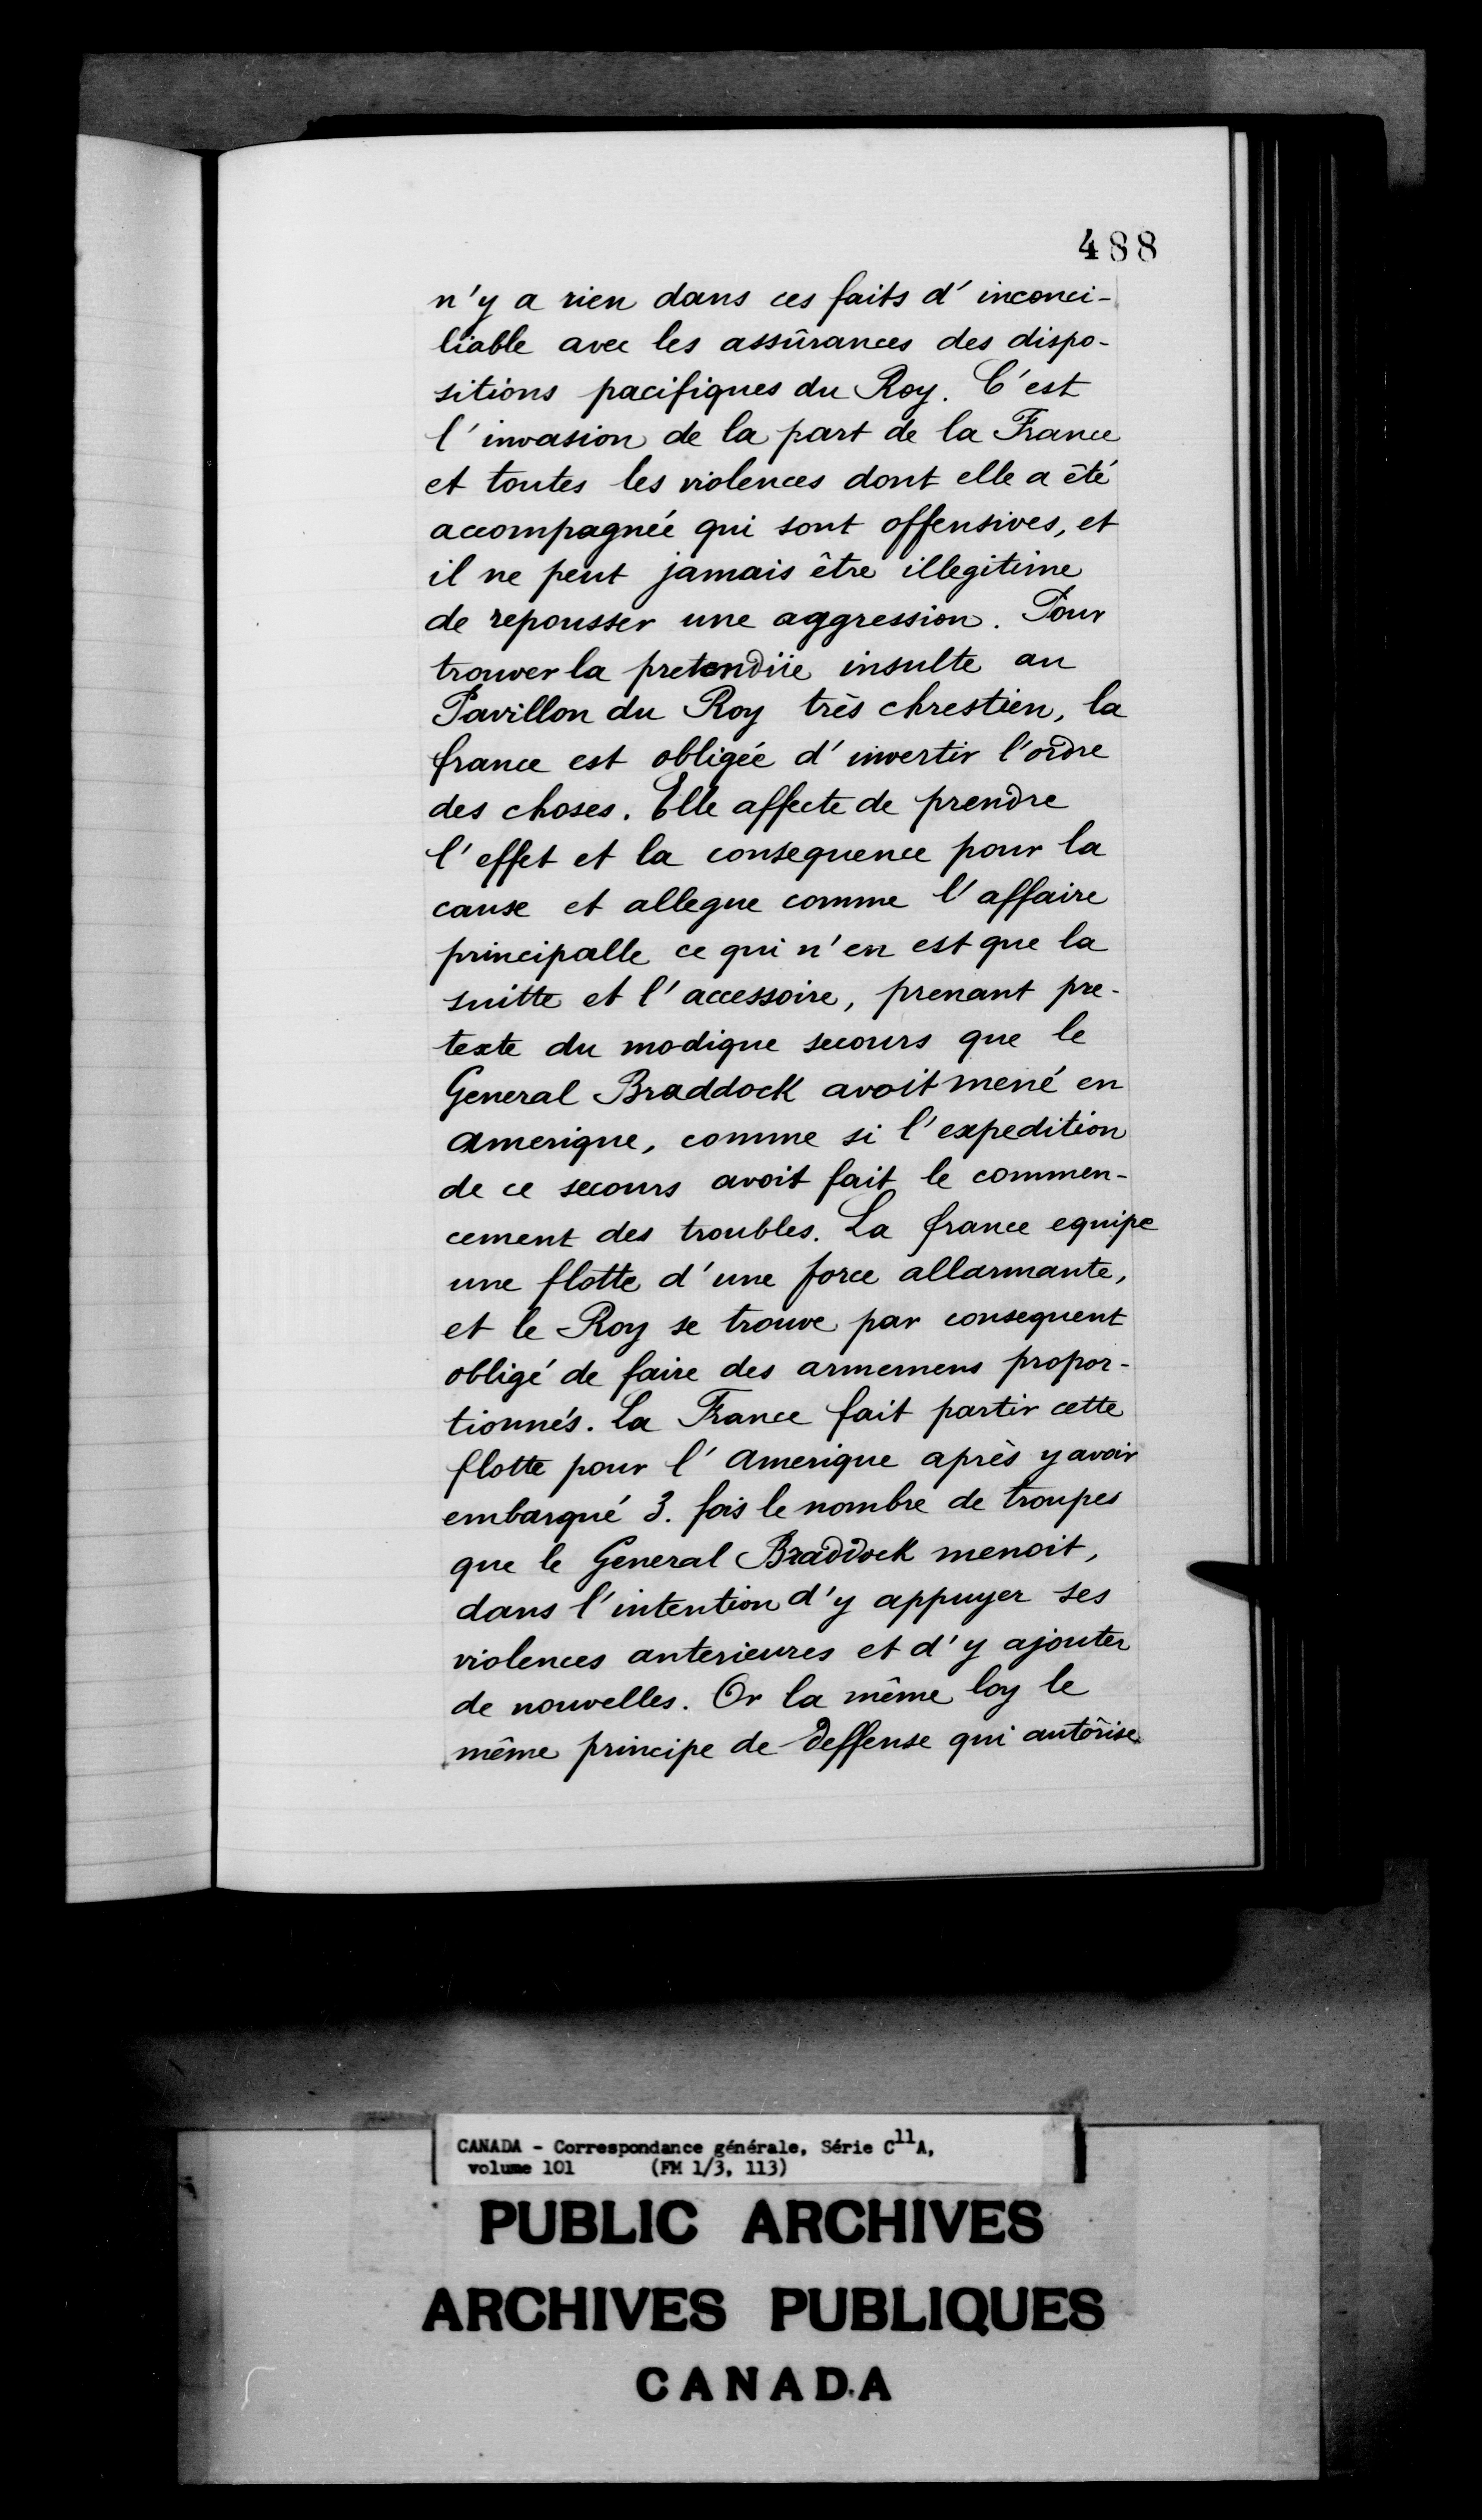 488
n'y a rien dans ces faits d'inconci-
liable avec les assûrances des dispo-
sitions pacifiques du Roy. C'est
l'invasion de la part de la France
et toutes les violences dont elle a êté
accompagnée qui sont offensives, et
il ne peut jamais être illegitime
de repousser une aggression. Pour
trouver la pretendüe insulte au
Pavillon du Roy très chrestien, la
france est obligée d'invertir l'ordre
des choses. Elle affecte de prendre
l'effet et la consequence pour la
cause et allegue comme l'affaire
principalle ce qui n'en est que la
suitte et l'accessoire, prenant pre-
texte du modique secours que le
General Braddock avoit mené en
amerique, comme si l'expedition
de ce secours avoit fait le commen-
cement des troubles. La france equipe
une flotte d'une force allarmante,
et le Roy se trouve par consequent
obligé de faire des armemens propor-
tionnés. La France fait partir cette
flotte pour l'amerique après y avoir
embarqué 3. fois le nombre de troupes
que le General Braddock menoit,
dans l'intention d'y appuyer ses
violences anterieures et d'y ajouter
de nouvelles. Or la même loy le
même principe de deffense qui autôrise
CANADA - Correspondance générale, Série C11A,
volume 101 (FM 1/3, 113)
PUBLIC ARCHIVES
ARCHIVES PUBLIQUES
CANADA